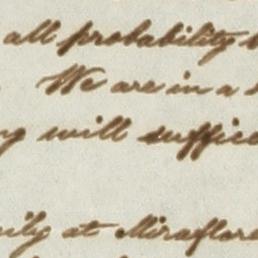 all probability
We are in a
will suffice
at Miraflore